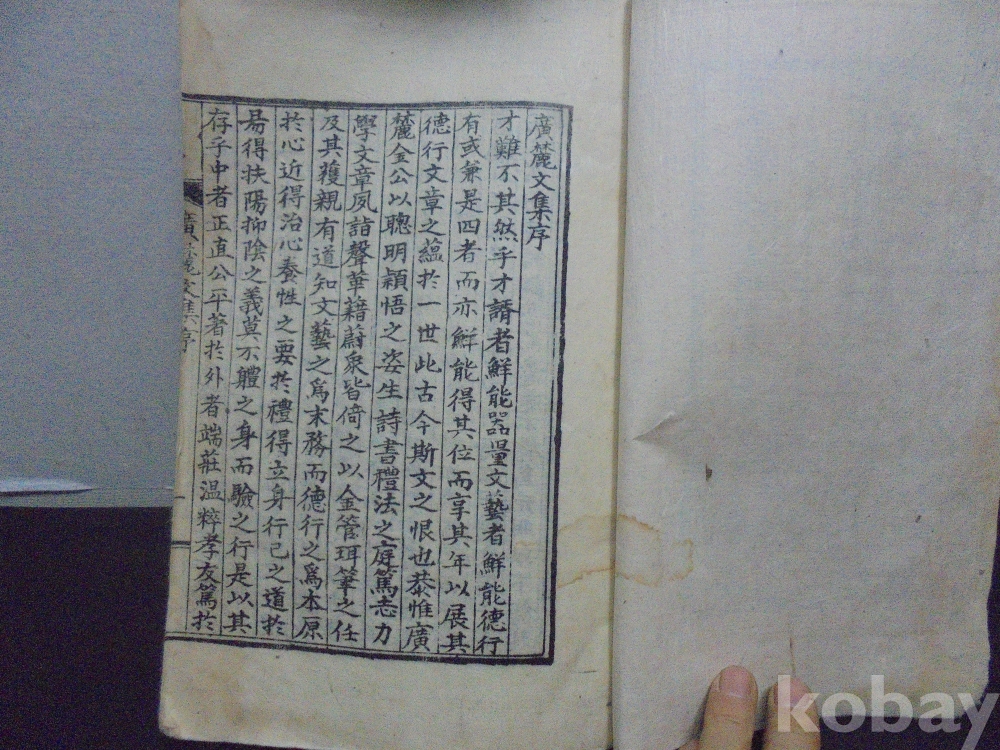 廣麓文集序
才難不其然乎才諝者鮮能器量文藝者鮮能德行
有或兼是四者而亦鮮能得其位而享其年以展其
德行文章之蘊於一世此古今斯文之恨也恭惟廣
麓金公以聰明穎悟之姿生詩書禮法之庭篤志力
學文章夙詣聲華藉蔚衆皆倚之以金管珥筆之任
及其獲親有道知文藝之爲末務而德行之爲本原
於心近得治心養性之要於禮得立身行己之道於
易得扶陽抑陰之義莫不體之身而驗之行是以其
存乎中者正直公平著於外者端莊溫粹孝友篤於
廣麓文集序
一
kobay